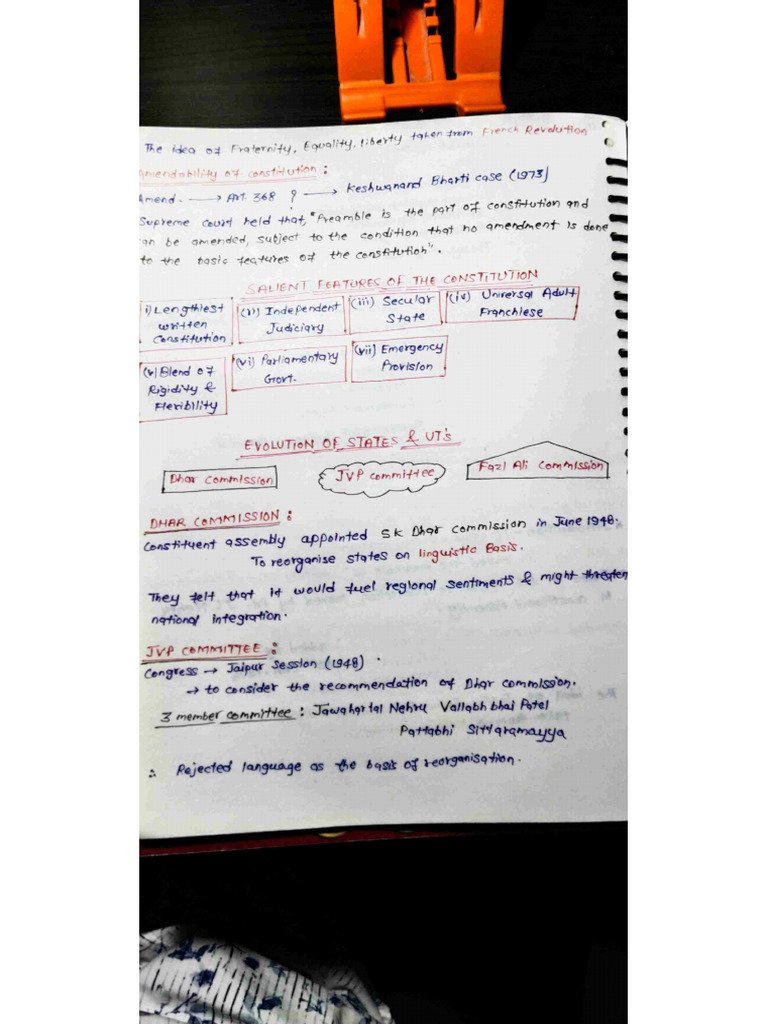 The idea of Fraternity, Equality, liberty taken from French Revolution
Amendability of constitution :
Amend. → Art. 368 ? → Keshwanand Bharti case (1973)
Supreme court held that, "Preamble is the part of constitution and
can be amended, subject to the condition that no amendment is done
to the basic features of the constitution".
SALIENT FEATURES OF THE CONSTITUTION
i) Lengthiest written Constitution
(ii) Independent Judiciary
(iii) Secular State
(iv) Universal Adult Franchiese
(v) Blend of Rigidity & Flexibility
(vi) Parliamentary Govt.
(vii) Emergency Provision
EVOLUTION OF STATES & UT's
Dhar Commission
JVP committee
Fazl Ali Commission
DHAR COMMISSION :
Constituent assembly appointed SK Dhar commission in June 1948.
To reorganise states on linguistic Basis.
They felt that it would fuel regional sentiments & might threaten
national integration.
JVP COMMITTEE :
Congress → Jaipur Session (1948) .
→ to consider the recommendation of Dhar commission.
3 member committee : Jawaharlal Nehru Vallabh bhai Patel
Pattabhi Sittaramayya
∴ Rejected language as the basis of reorganisation.